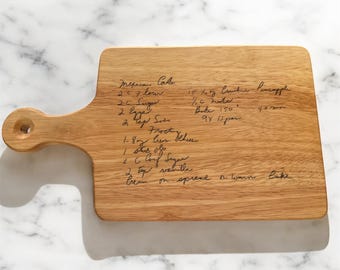 Mexican Cake
2 c Flour
2 c Sugar
2 Eggs
2 tsp Soda
Crushed Pineapple
1 c Nuts
Bake 350°
9 x 13 pan
Frosty
1- 8 oz
1 stick
1 c Conf Sugar
2 tsp vanilla
Cream spread on warm Cake